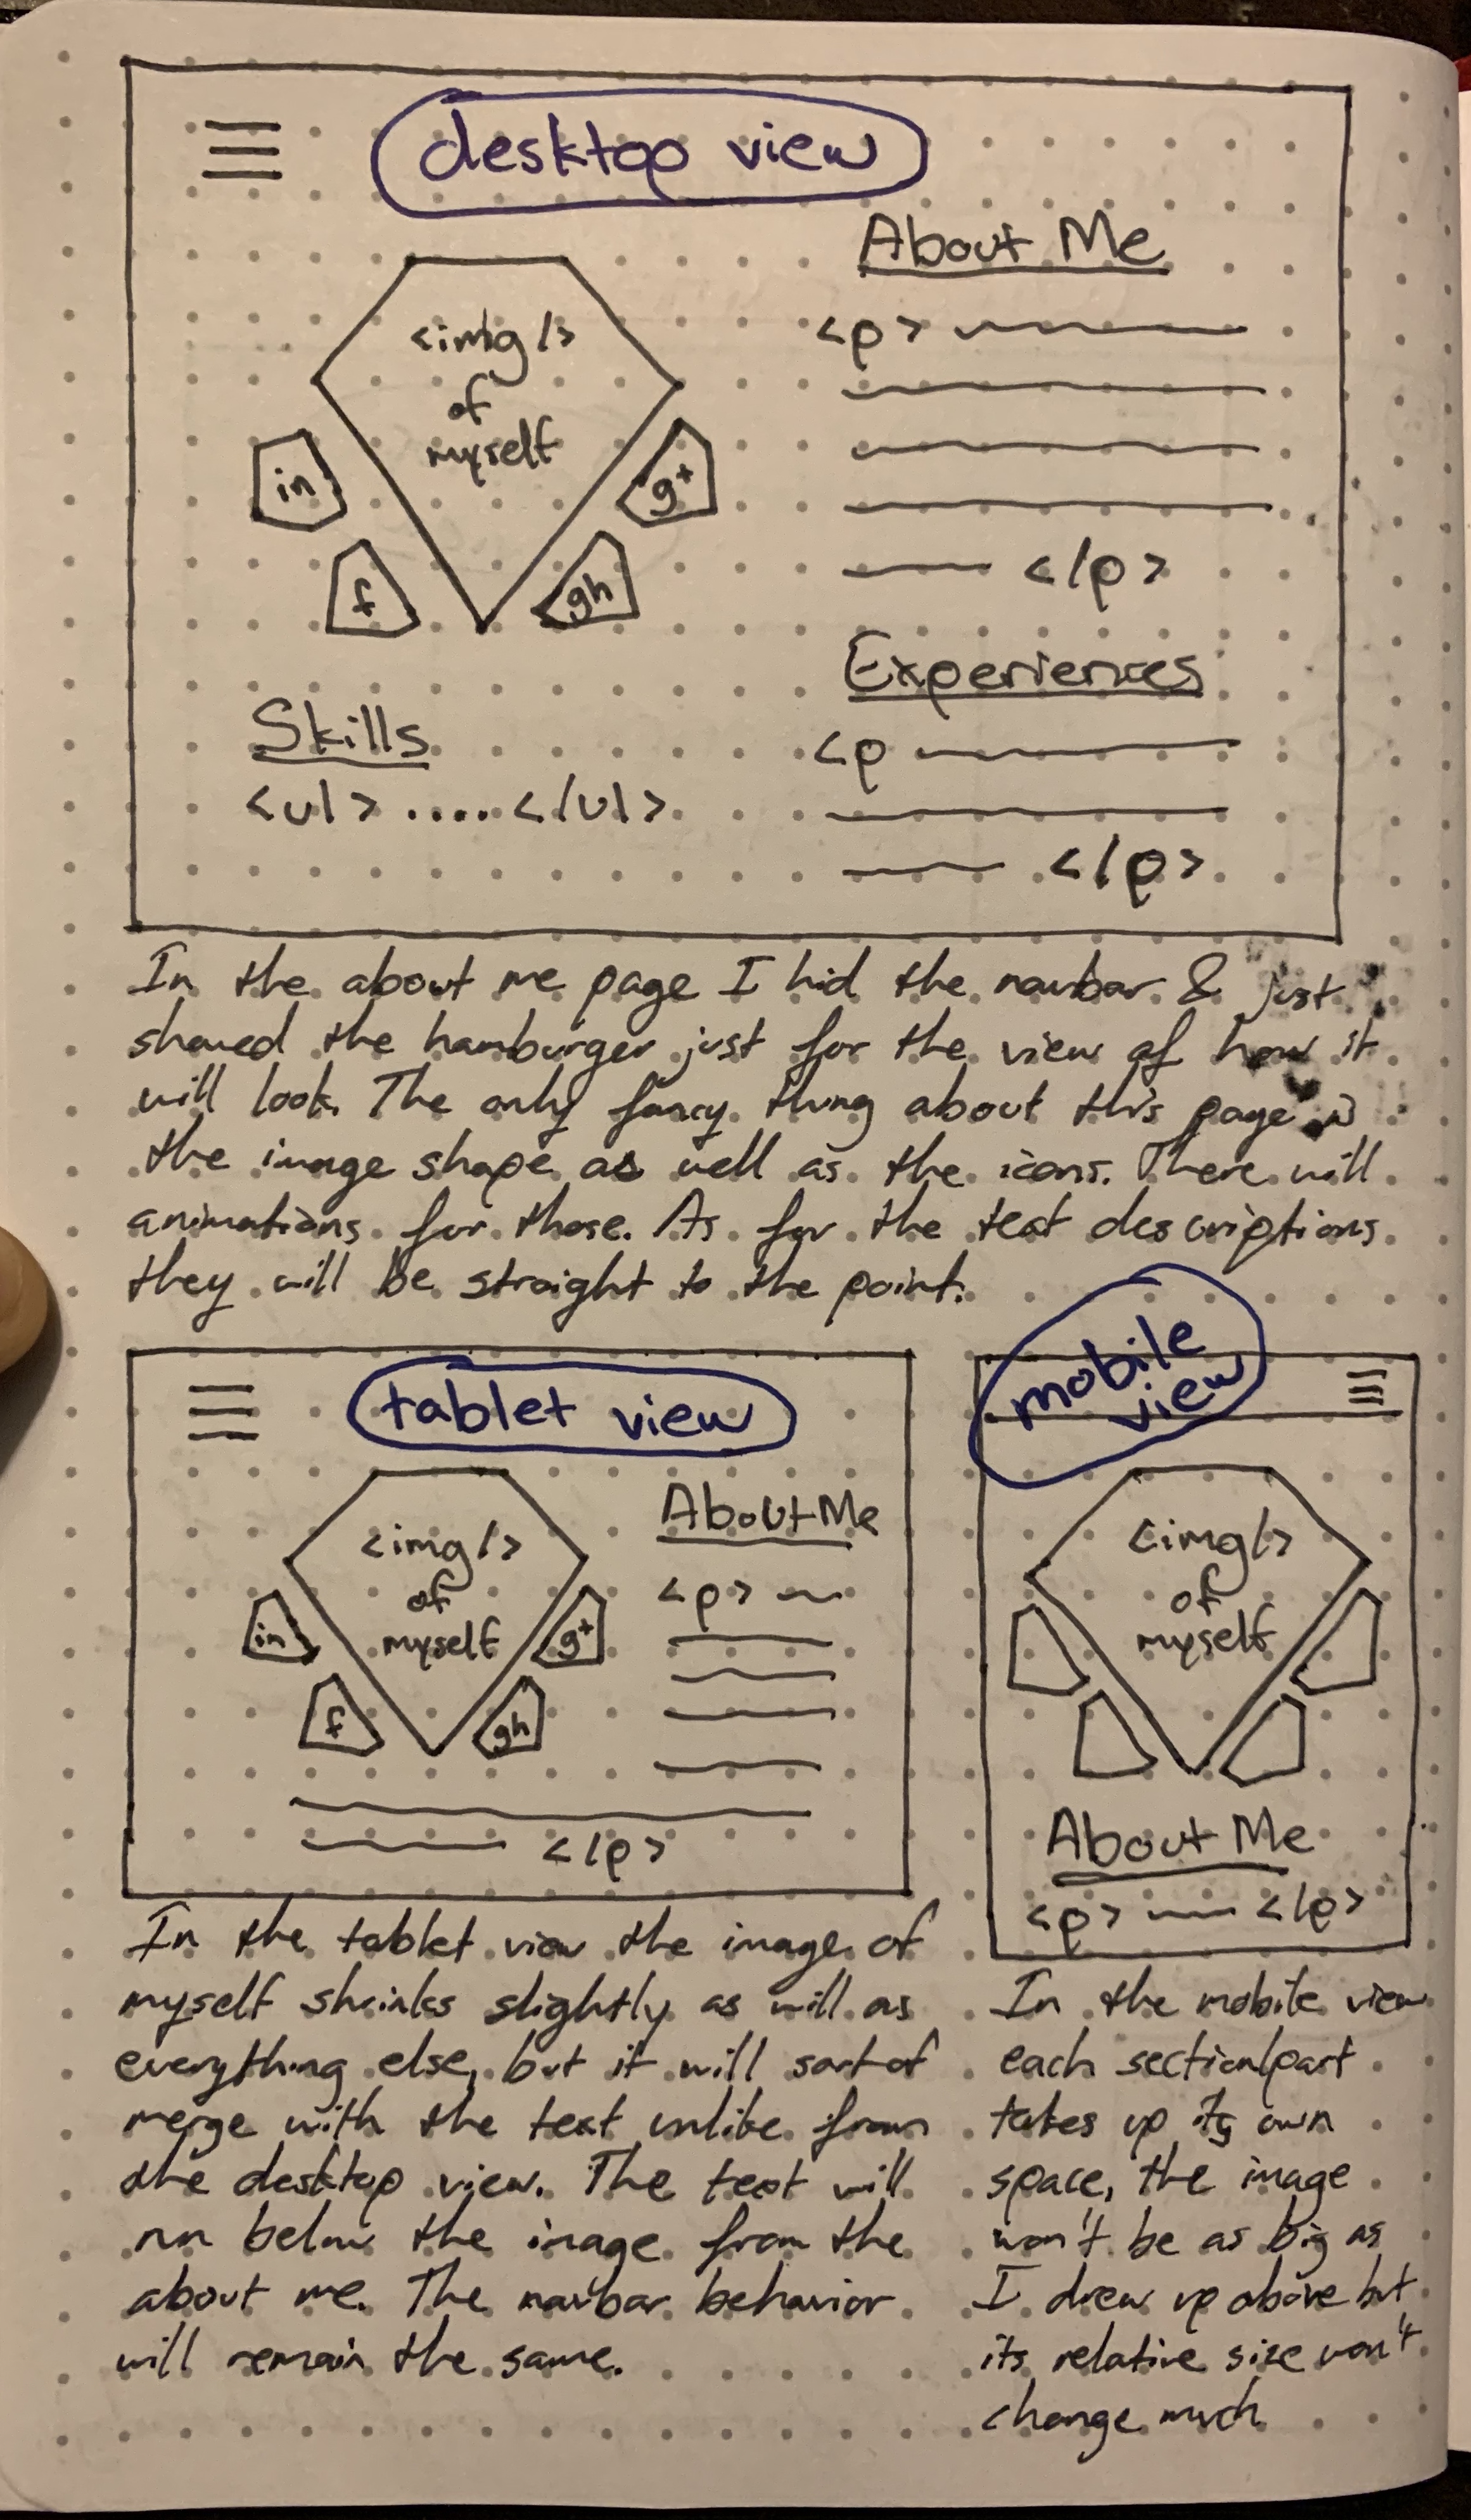 desktop view
About Me
<img/>
of
myself
<p>
in
g+
f
gh
</p>
Experiences
Skills
<p
<ul> ..... </ul>
</p>
In the about me page I hid the navbar & just
showed the hamburger just for the view of how it
will look. The only fancy thing about this page is
the image shape as well as the icons. There will
animations for those. As for the text descriptions
they will be straight to the point.
tablet view
About Me
<img/>
of
myself
<p>
in
g+
f
gh
</p>
mobile
view
<img/>
of
myself
About Me
<p> </p>
In the tablet view the image of
myself shrinks slightly as will as
everything else, but it will sort of
merge with the text unlike from
the desktop view. The text will
run below the image from the
about me. The navbar behavior
will remain the same.
In the mobile view
each section/part
takes up its own
space, the image
won't be as big as
I drew up above but
its relative size won't
change much